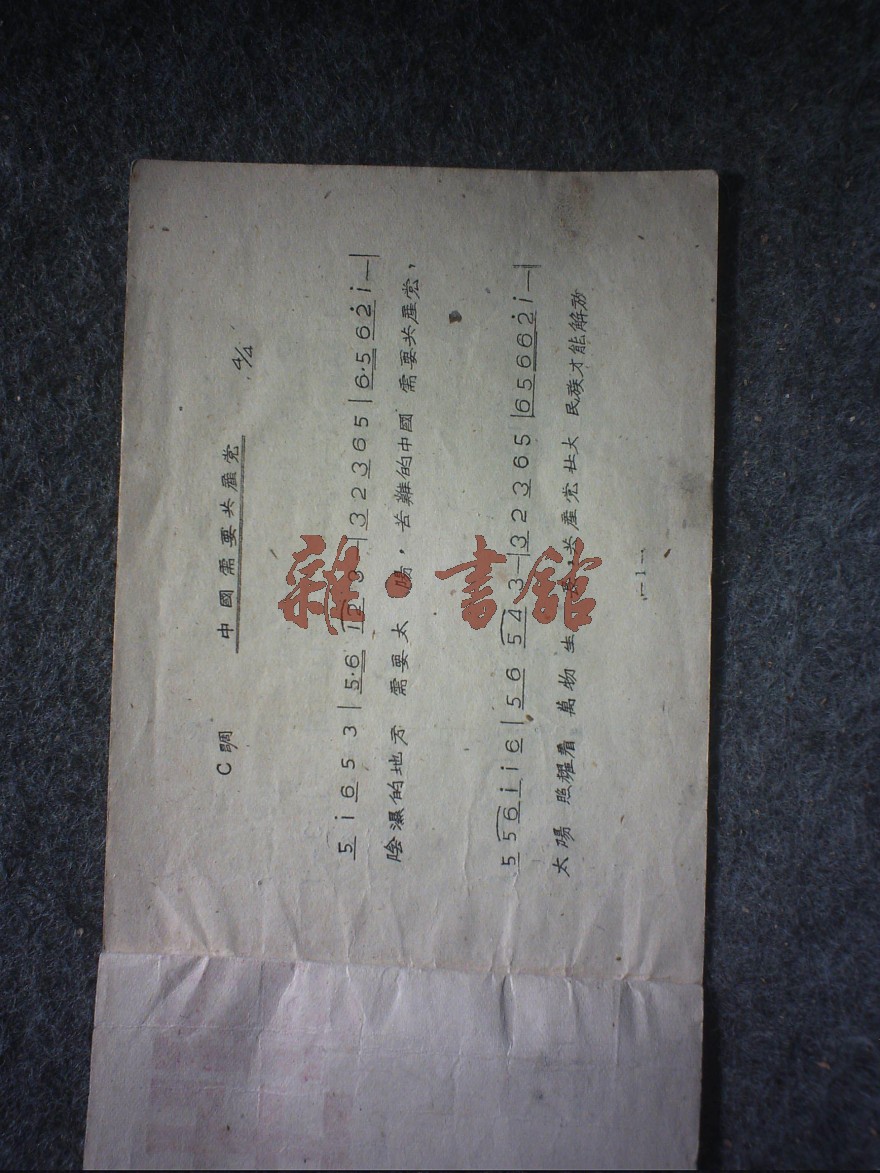 中國需要共產党
C調 4/4
5 i 6 5 3 | 5·6 1 2 3 — | 3 2 3 6 5 | 6·5 6 2 i — |
陰濕的地方 需要太陽，苦難的中國 需要共產党，
5 5 6 i i 6 | 5 6 5 4 3 — | 3 2 3 6 5 | 6 5 6 6 2 i — |
太陽 照耀着 萬物生 共產党壯大 民族才能解放
—1—
雜·書館